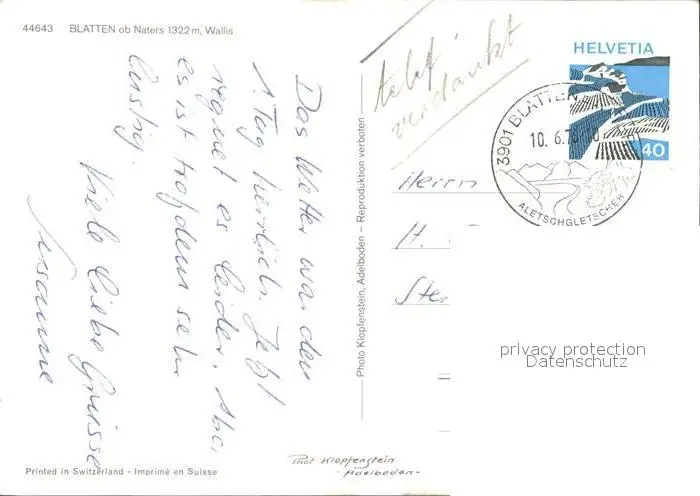 44643 BLATTEN ob Naters 1322 m, Wallis
Das Wetter war den
1 Tag herrlich. Jetzt
regnet es leider. Aber
es ist trotzdem sehr
lustig.
Viele liebe Grüsse
Susanne
Printed in Switzerland - Imprimé en Suisse
Photo Klopfenstein, Adelboden – Reproduktion verboten
telef.
verdankt
HELVETIA
40
3901 BLATTEN
10. 6. 7
ALETSCHGLETSCHER
Herrn
H.
Phot Klopfenstein
- Adelboden -
privacy protection
Datenschutz